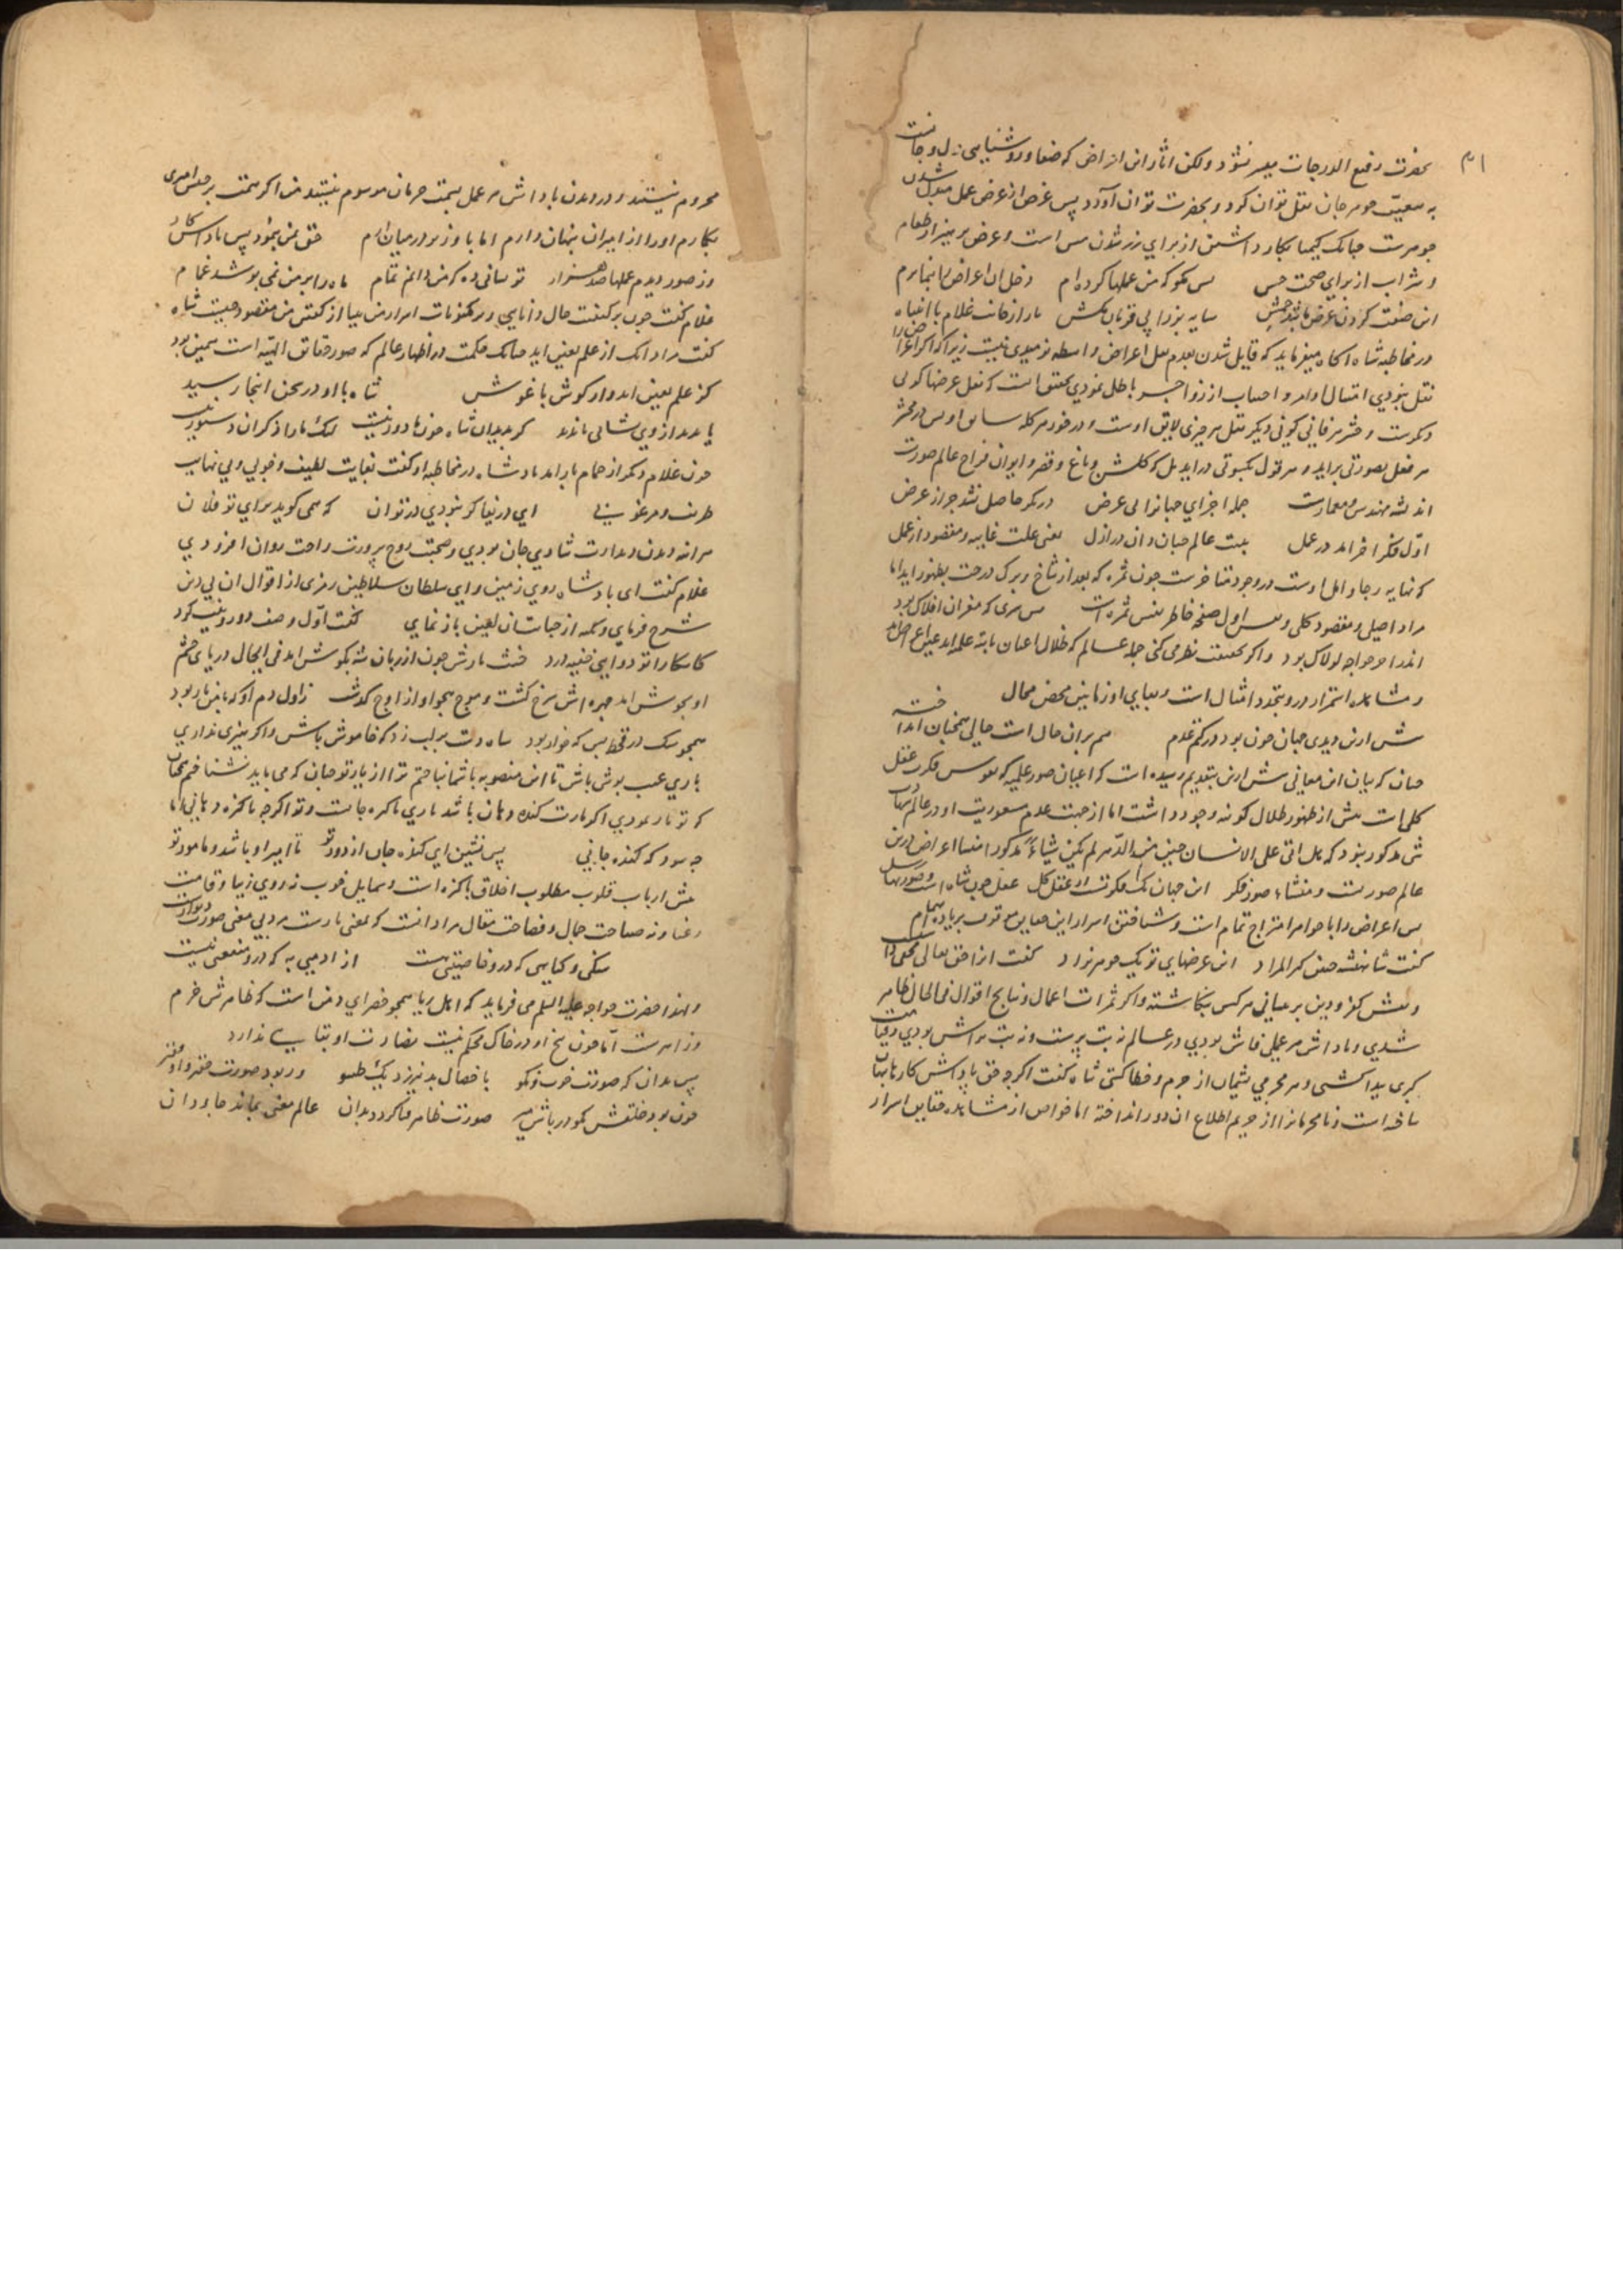 بحضرت رفیع الدرجات میسر نشود ولکن اثار این اعراض که ضیا و روشنایی دل و جانست
به معیت جوهر جان نقل توان کرد و بحضرت توان آورد پس غرض از عرض عمل مبدل شدن
جوهرست چنانک کیمیا بکار داشتن از برای زر شدن مس است و عرض پرهیز از طعام
و شراب از برای صحت جسم پس مگو که من عملها کرده ام دخل ان اعراض را بنما مرم
این صفت کردن عرض باشد خمش سایه بز را پی قربان مکش باز از غلام با انتباه
در مخاطبه شاه اکاه میفرماید که قایل شدن بعدم نقل اعراض واسطه نومیدی نیست زیرا که اگر اعراض را
نقل نبودی امتثال اوامر و اجتناب از زواجر باطل نمودی محقق است که نقل عرضها کونی
دیگرست و حشر هر فانی کونی دیگر نقل هر چیزی لایق اوست و در خور هر گله سایق او پس در محشر
هر فعل بصورتی براید و هر قول بکسوتی دراید بل که گلشن و باغ و قصر و ایوان فراخ عالم صورت
اندیشه مهندس و معمارست جمله اجزای جهانرا بی عرض درنگر حاصل نشد جز از عرض
اول فکر اخر امد در عمل نیت عالم چنان دان در ازل یعنی علت غاییه و مقصود از عمل
که نهایه رجا و امل اوست در وجود متاخرست چون ثمره که بعد از شاخ و برک درخت بظهور اید اما
مراد اصیل و مقصود کلی و نقش اول صفحه خاطر نفس ثمره است پس سری که مغز ان افلاک بود
اندر اخر خواجه لولاک بود و اکر بحقیقت نظر می کنی جمله عالم که ظلال اعیان ثابته علمیه اند
و مشاهده استمرار در و بتجدد امثال است و بقای او زمانین محض محال
پیش ازین دیدی جهان چون بود در کتم عدم هم بران حال است حالی همچنان
چنان که بیان این معانی پیش ازین بتقدیم رسیده است که اعیان صور علمیه که نقوش فکرت عقل
کلی است پیش از ظهور ظلال کونیه وجود داشت اما از جهت عدم
شی مذکور نبود که هل اتی علی الانسان حین من الدهر لم یکن شیاء مذکورا
عالم صورتست و منشاء صور فکر این جهان یک فکرتست از عقل کل عقل چون شاه است و صورتها رسل
پس اعراض را با جواهر امتزاج تمام است و شناختن اسرار این معانی موقوف
گفت شاهنشه چنین گیر المراد این عرضهای تو یک جوهر نزاد گفت از حق تعالی مخفی
و نقش کفر و دین بر پیشانی هر کس بنگاشته و اکر ثمرات اعمال و نتایج اقوال فی الحال ظاهر
شدی و پاداش هر عملی فاش بودی در عالم نه بت پرست و نه بت تراش بودی و قیامت
کبری پیدا گشتی و هر مجرمی پشیمان از جرم و خطا گشتی شاه گفت اکر چه حق پاداش کارها پنهان
ساخته است و نامحرمانرا از حریم اطلاع ان دور انداخته اما خواص از مشاهده حقایق اسرار
محروم نیستند و در دیدن پاداش هر عمل بسمت حرمان موسوم نیستند من اکر همت بر حبس امیری
بگمارم او را از امیران پنهان دارم اما با وزیر در میان ارم حق بمن بنمود پس پاداش کار
وز صورهای عملها صد هزار تو نشانی ده که من دانم تمام ماه را بر من نمی پوشد غمام
غلام گفت چون بر کیفیت حال دانایی و بر مکنونات اسرار من بینا از گفتن من مقصود چیست شاه
گفت مراد انک از علم بعین اید چنانک حکمت در اظهار عالم که صور دقایق الهیه است همین بود
کز علم بعین اید و از گوش باغوش شاه با او در سخن اینجا رسید
یا بدید از وی نشانی ناپدید گر بدید ان شاه جویا دور نیست لیک ما را ذکر ان دستور نیست
چون غلام دیگر از حمام باز امد پادشاه در مخاطبه او گفت بغایت لطیف و خوبی و بی نهایت
ظریف و مرغوبی ای دریغا گر نبودی در تو ان که همی گوید برای تو فلان
هر آینه دیدن دیدارت شادی جان بودی و صحبت روح پرورت راحت روان افزودی
غلام گفت ای پادشاه روی زمین و ای سلطان سلاطین رمزی از اقوال ان بی دین
شرح فرمای و شمه از خباثت ان لعین باز نمای گفت اول وصف دو روییت کرد
کاشکارا تو دوایی خفیه درد خبث یارش چون از زبان شه بگوش امد فی الحال دریای خشم
او بجوش امد چهره اش سرخ گشت و موج هجو او از اوج گذشت ز اول دم او که با من یار بود
همچو سگ در قحط بس که خوار بود شاه دست بر لب زد که خاموش باش و اکر هنری نداری
باری عیب پوش باش تا این منصوبه با شما نباختم ترا از یار تو چنان که می باید نشناختم
که تو یار نمودی اکر یارت گنده دهان باشد باری پاکیزه جانست و تو اکر چه پاکیزه دهانی اما
چه سود که گنده جانی پس نشین ای گنده جان از دور تو تا امیر او باشد و مامور تو
پیش ارباب قلوب مطلوب اخلاق پاکیزه است و شمایل خوب نه روی زیبا و قامت
رعنا و نه صباحت جمال و فصاحت مقال مراد انست که بمعنی یارست مرد بی معنی صورت دیوارست
سنگی و گیاهی که درو خاصیتی هست از ادمیی به که درو منفعتی نیست
و لهذا حضرت خواجه علیه السلم می فرماید که اهل ریا همچو خضرای دمن است که ظاهرش خرم
و زاهرست اما چون بیخ او در خاک محکم نیست نضارت او بقایی ندارد
پس بدان که صورت خوب و نکو با خصال بد نیرزد یک طسو ور بود صورت حقیر و
چون بود خلقش نکو در پاش میر صورت ظاهر فنا گردد بدان عالم معنی بماند جاودان